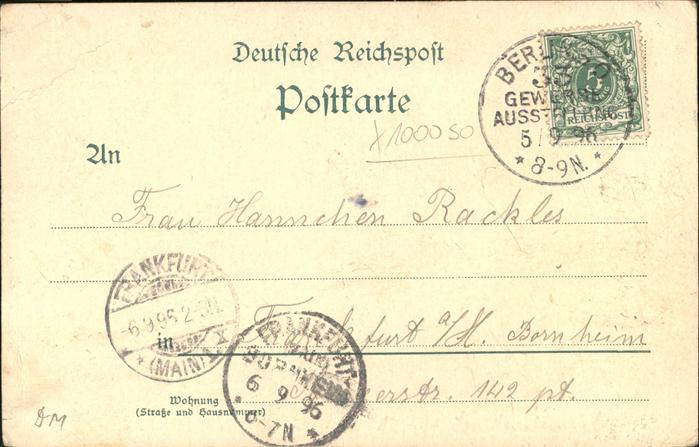 Deutsche Reichspost
Postkarte
BERLIN
GEWERBE
AUSSTELLUNG
5/9 96
* 8-9N. *
5
REICHSPOST
X1000 50
An
Frau Hannchen Rackles
FRANKFURT
6.9.96.2-3N.
* (MAIN) 1. *
in Frankfurt a/M. Bornheim
FRANKFURT-
BORNHEIM
6 9 96
* 6-7N *
erstr. 142 pt.
Wohnung
(Straße und Hausnummer)
DM